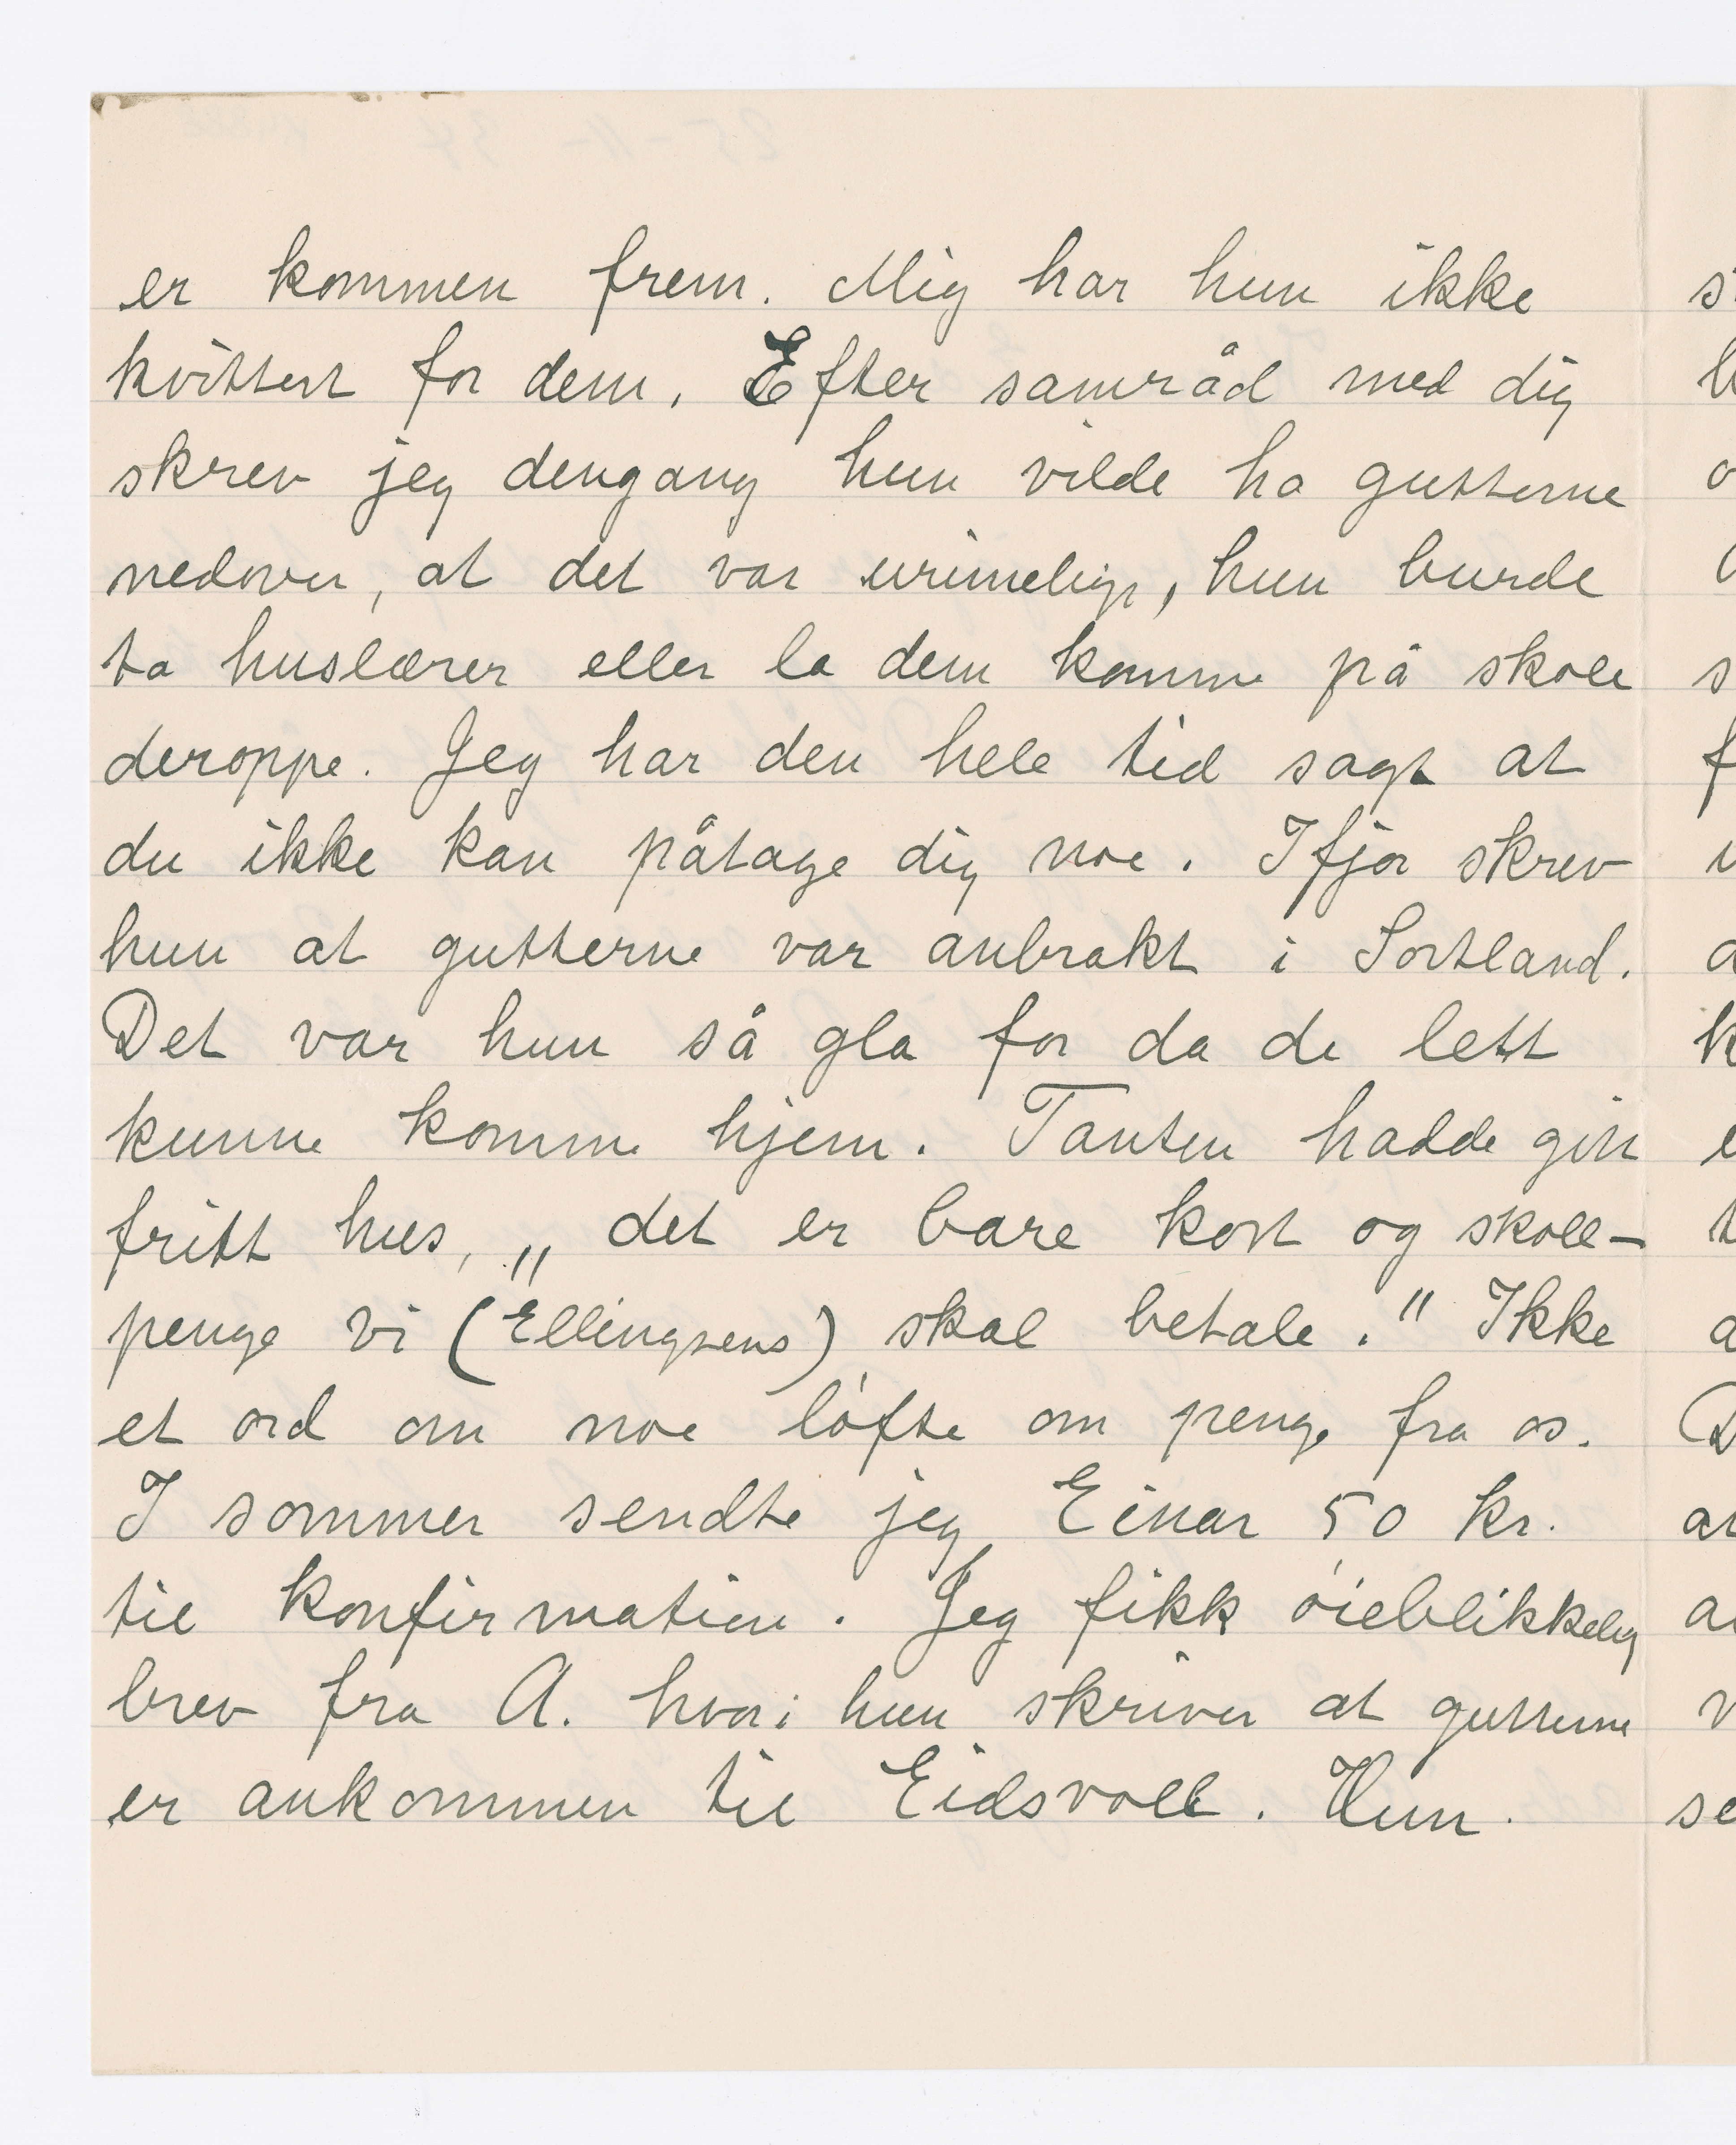 er kommen frem. Mig har hun ikke
kvittert for dem. Efter samråd med dig
skrev jeg dengang hun vilde ha gutterne
nedover, at det var urimelig, hun burde
ta huslærer eller la dem komme på skole
deroppe. Jeg har den hele tid sagt at
du ikke kan påtage dig noe. Ifjor skrev
hun at gutterne var anbrakt i Sortland.
Det var hun så gla for da de lett
kunne komme hjem. Tanten hadde gitt
fritt hus, „det er bare kost og skole-
penge vi (Ellingsens) skal betale." Ikke
et ord om noe løfte om penge fra os.
I sommer sendte jeg Einar 50 kr.
til konfirmation. Jeg fikk øieblikkelig
brev fra A. hvori hun skriver at gutterne
er ankommen til Eidsvoll. Hun